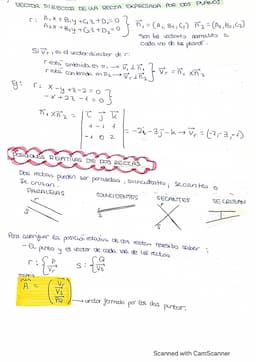 VECTOR DIRECTOR DE UNA RECTA EXPRESADA POR DOS PLANOS:
r: A₁x + B₁y + C₁z + D₁ = 0
A₂x + B₂y + C₂z + D₂ = 0
n₁ = (A₁, B₁, C₁) n₂ = (A₂, B₂, C₂)
Son los vectores normales a
cada uno de los planos.
Si vr es el vector director de r
recta contenida en π₁ → vr ⊥ n₁
recta contenida en π₂ → vr ⊥ n₂
vr = n₁ × n₂
Ej: r: x - y + z - 2 = 0
-x + 2z - 1 = 0
n₁ × n₂ = i j k
1 -1 1
-1 0 2
= -2i - 3j - k → vr = (-2, -3, -1)
POSICIONES RELATIVAS DE DOS RECTAS
Dos rectas pueden ser paralelas, coincidentes, secantes o
se cruzan.
PARALELAS COINCIDENTES SECANTES SE CRUZAN
r s
Para averiguar la posición relativa de dos rectas necesito saber:
- El punto y el vector de cada una de las rectas
r: { P vr s: { Q vs
A = ( vr vs PQ ) → vector formado por los dos puntos.
Scanned with CamScanner